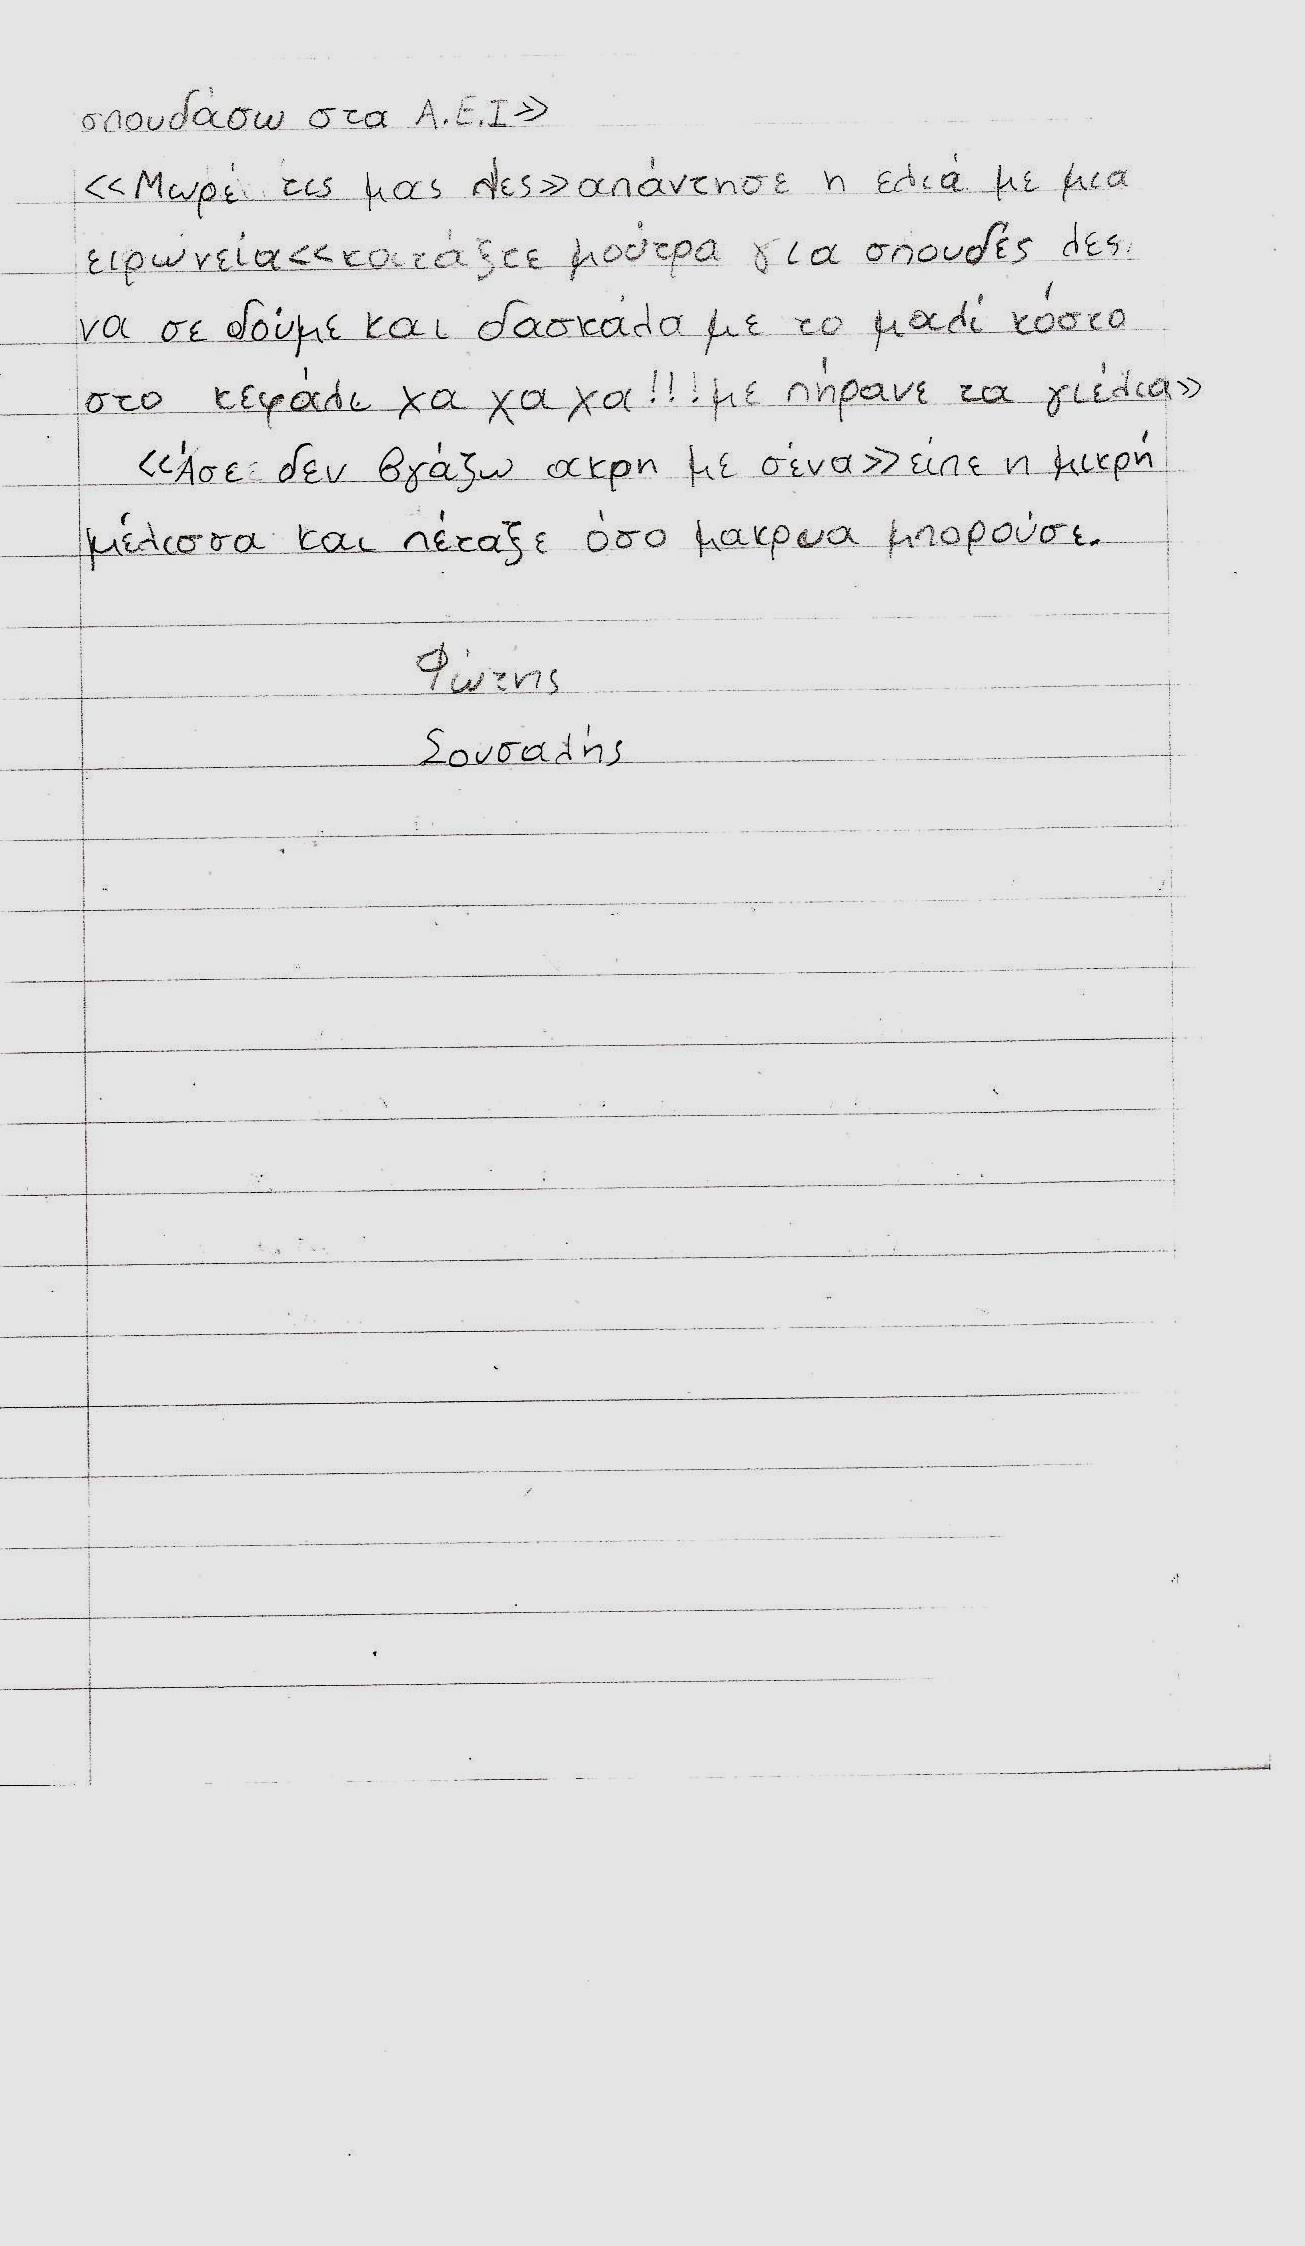 σπουδάσω στα Α.Ε.Ι»
«Μωρέ τις μας λες» απάντησε η ελιά με μια
ειρωνεία «κοιτάξτε μούτρα για σπουδές λες
να σε δούμε και δασκάλα με το μαλί κόστο
στο κεφάλι χα χα χα!!! με πήρανε τα γιέλια»
«Άσε δεν βγάζω ακρη με σένα» είπε η μικρή
μέλισσα και πέταξε όσο μακρυα μπορούσε.
Φώτης
Σουσαλής